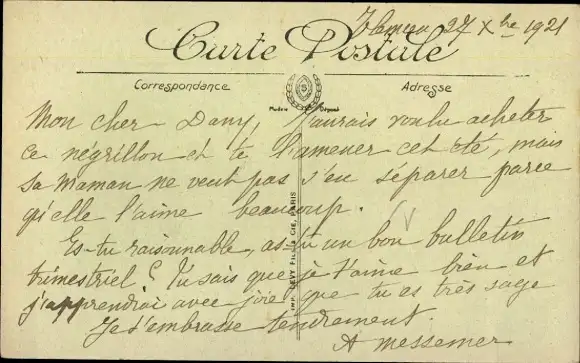 Tlemcen 27 Xbre 1921
Carte Postale
Correspondance
Adresse
Modèle Déposé
Mon cher Dany, j'aurais voulu acheter
ce négrillon et te l'amener cet été, mais
sa maman ne veut pas s'en séparer parce
qu'elle l'aime beaucoup.
Es-tu raisonnable, as-tu un bon bulletin
trimestriel? Tu sais que je t'aime bien et
j'apprendrai avec joie que tu es très sage
Je t'embrasse tendrement
A Messemer
IMP. LEVY FILS & CIE, PARIS